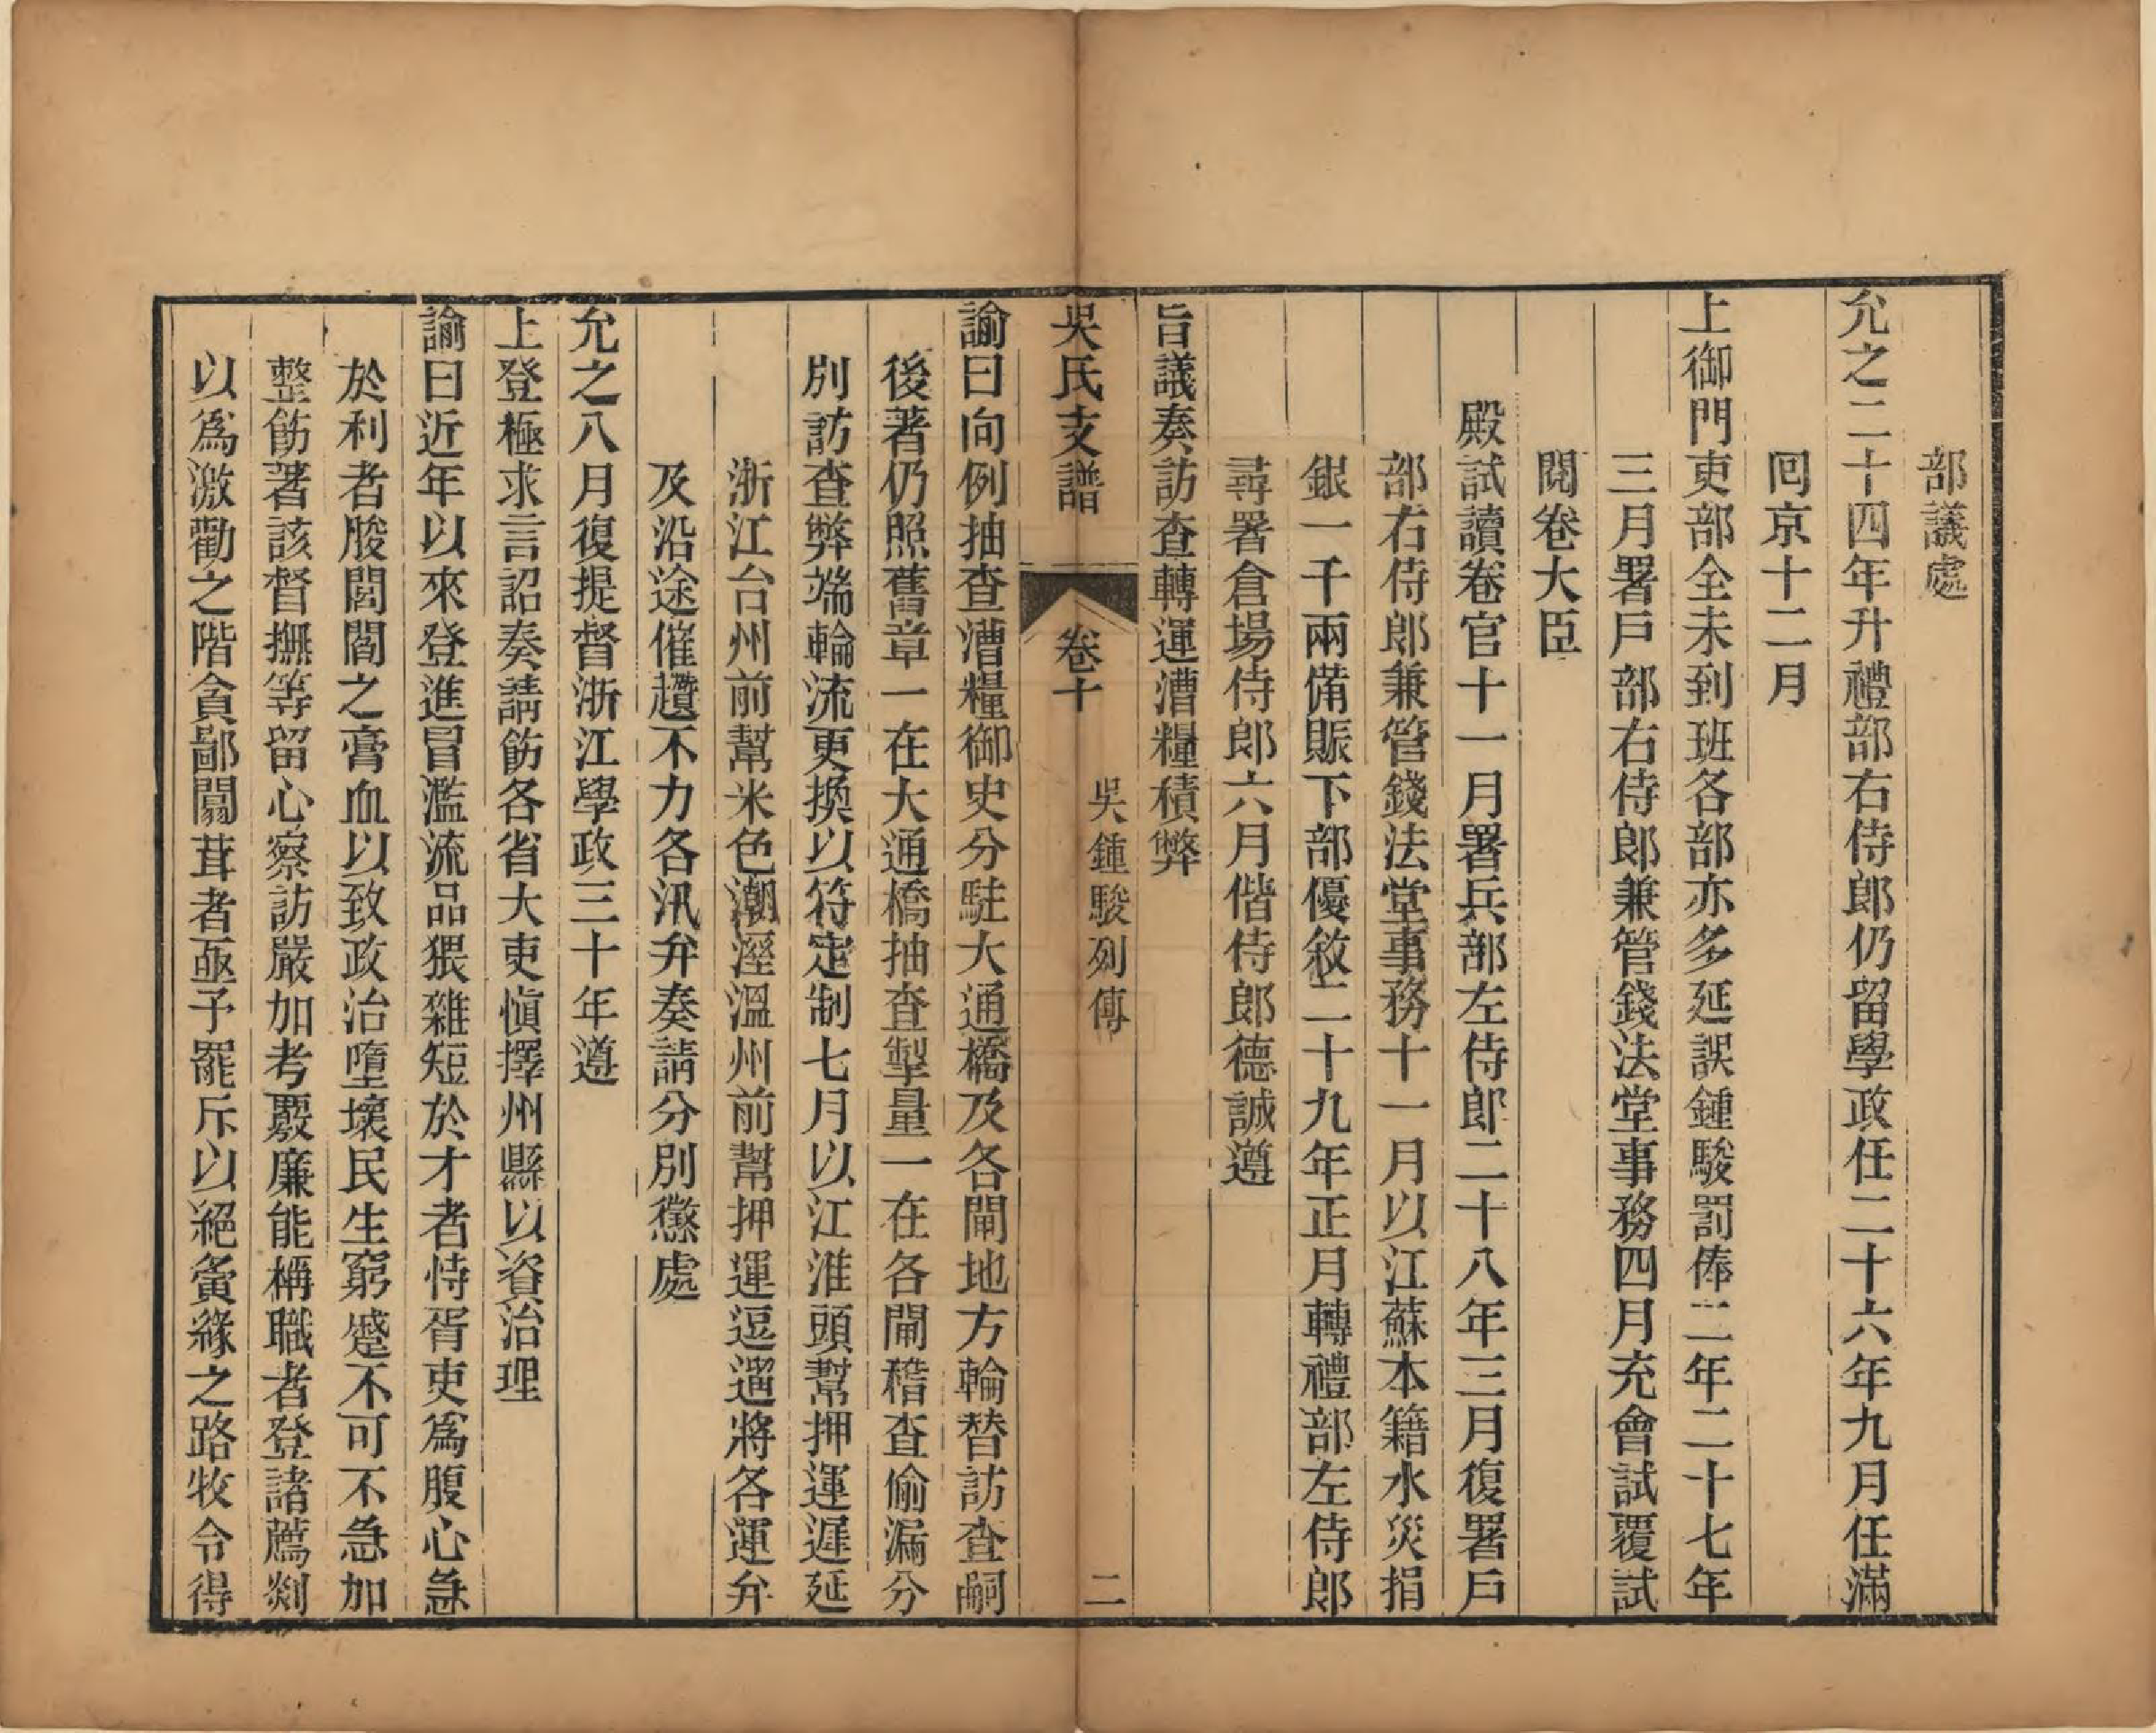 部議處
允之二十四年升禮部右侍郎仍留學政任二十六年九月任滿
囘京十二月
上御門吏部全未到班各部亦多延誤鍾駿罰俸二年二十七年
三月署戶部右侍郎兼管錢法堂事務四月充會試覆試
閱卷大臣
殿試讀卷官十一月署兵部左侍郎二十八年三月復署戶
部右侍郎兼管錢法堂事務十一月以江蘇本籍水災捐
銀一千兩備賑下部優敘二十九年正月轉禮部左侍郎
尋署倉場侍郎六月偕侍郎德誠遵
旨議奏訪查轉運漕糧積弊
吳氏支譜
卷十
吳鍾駿列傳
二
諭曰向例抽查漕糧御史分駐大通橋及各閘地方輪替訪查嗣
後著仍照舊章一在大通橋抽查掣量一在各閘稽查偷漏分
別訪查弊端輪流更換以符定制七月以江淮頭幫押運遲延
浙江台州前幫米色潮溼溫州前幫押運逗遛將各運弁
及沿途催趲不力各汛弁奏請分別懲處
允之八月復提督浙江學政三十年遵
上登極求言詔奏請飭各省大吏愼擇州縣以資治理
諭曰近年以來登進冒濫流品猥雜短於才者恃胥吏爲腹心急
於利者朘閭閻之膏血以致政治墮壞民生窮蹙不可不急加
整飭著該督撫等留心察訪嚴加考覈廉能稱職者登諸薦剡
以爲激勸之階貪鄙闒茸者亟予罷斥以絕夤緣之路牧令得